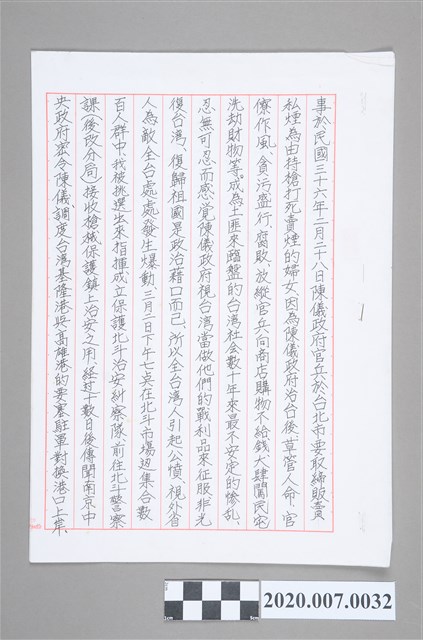 事於民國三十六年二月二十八日陳儀政府官兵於台北市要取締販賣
私煙為由持槍打死賣煙的婦女因為陳儀政府治台後、草管人命、官
僚作風、貪污盛行、腐敗、放縱官兵向商店購物不給錢、大肆闖民宅
洗劫財物等、成為土匪來踏盤的台灣社會數十年來最不安定的慘亂、
忍無可忍而感覺陳儀政府視台灣當做他們的戰利品來征服、非光
復台灣、復歸祖國是政治藉口而已、所以全台灣人引起公憤、視外省
人為敵全台處處發生爆動、三月二日下午七点在北斗市場邊集合數
百人群中、我被挑選出來指揮、成立保護北斗治安糾察隊、前往北斗警察
課(後改分局)接收槍械保護鎮上治安之用、經过十數日後傳聞南京中
央政府密令陳儀、調度台灣基隆港與高雄港的要塞駐軍對換港口上岸、
2020.007.0032